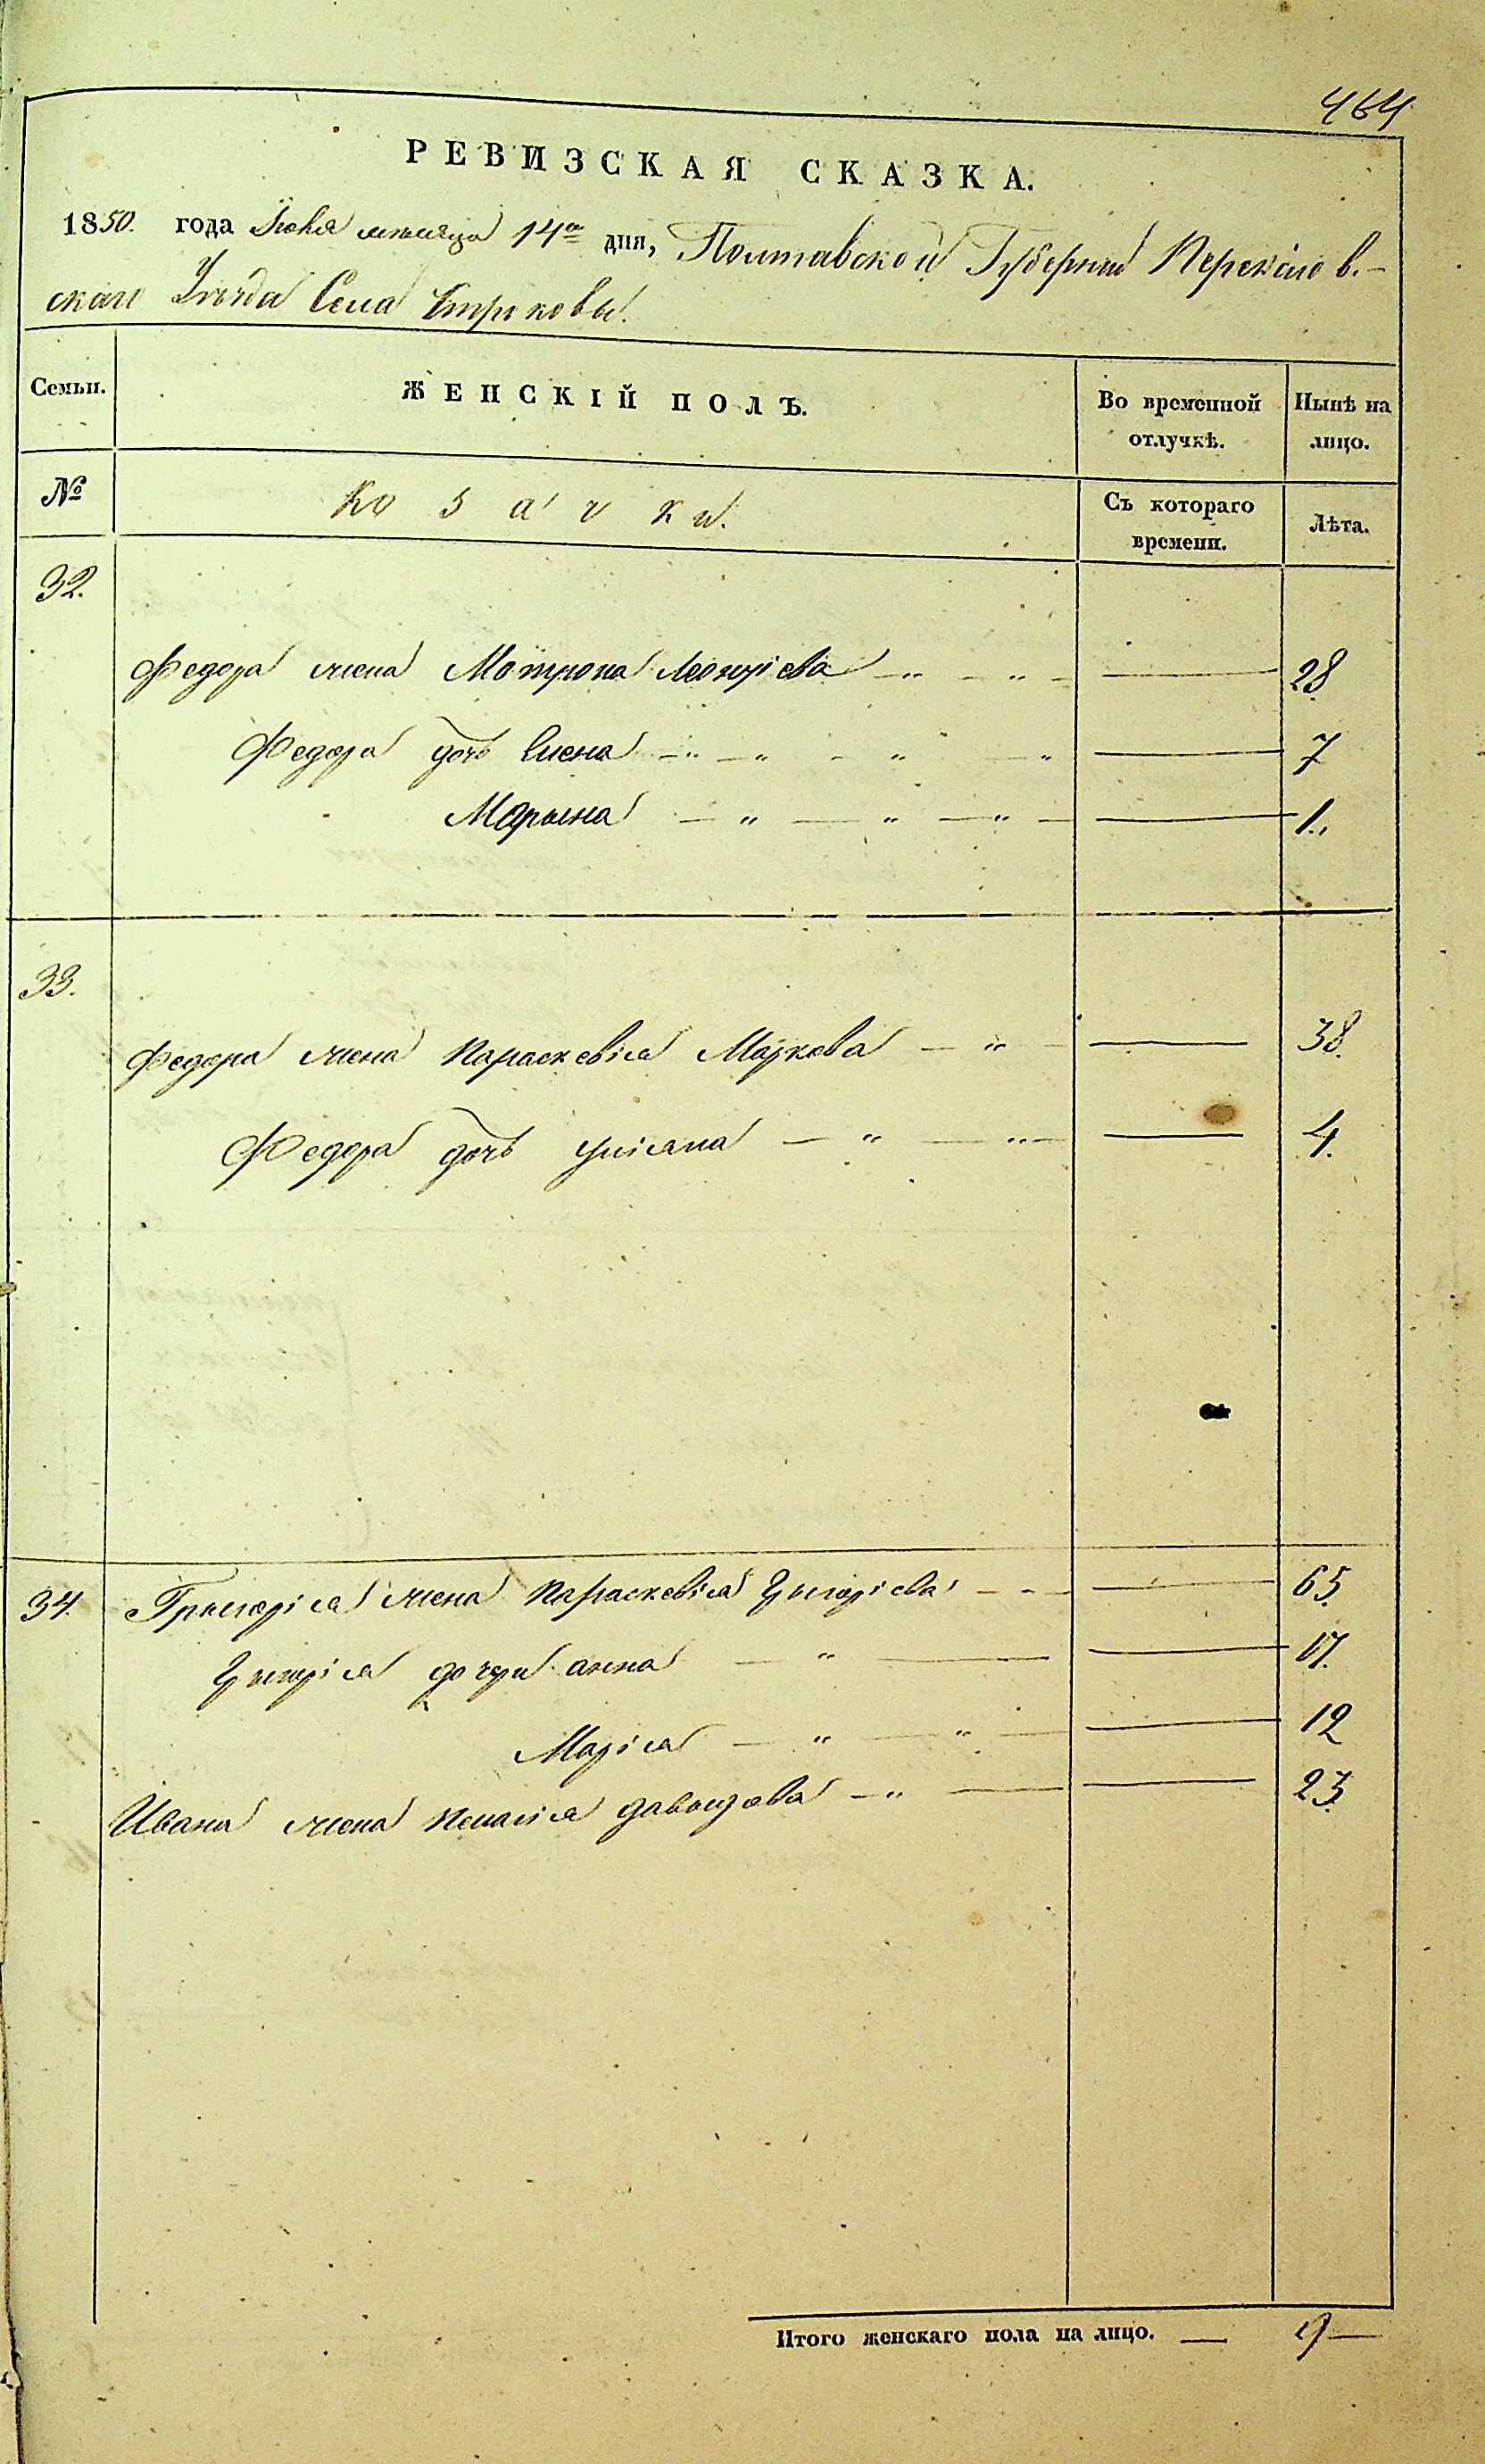 464
РЕВИЗСКАЯ СКАЗКА.
1850. года Июня месяца 14го дня, Полтавской Губернии Переяслов-
скаго Уезда Села
Семьи.
ЖЕНСКІЙ ПОЛЪ.
Во временной отлучкѣ.
Нынѣ на лицо.
№
Козачки.
Съ котораго времени.
Лѣта.
32.
Федора жена Мотрона 28
Федора дочь Елена 7
Марына 1.
33.
Федора жена Параскевія Маркова 38.
Федора дочь Уліяна 4.
34. Григорія жена Параскевія Григоріева 65.
Григорія дочери Анна 17.
Марія 12
Ивана жена Пелагія Давыдова 23.
Итого женскаго пола на лицо. — 9 —